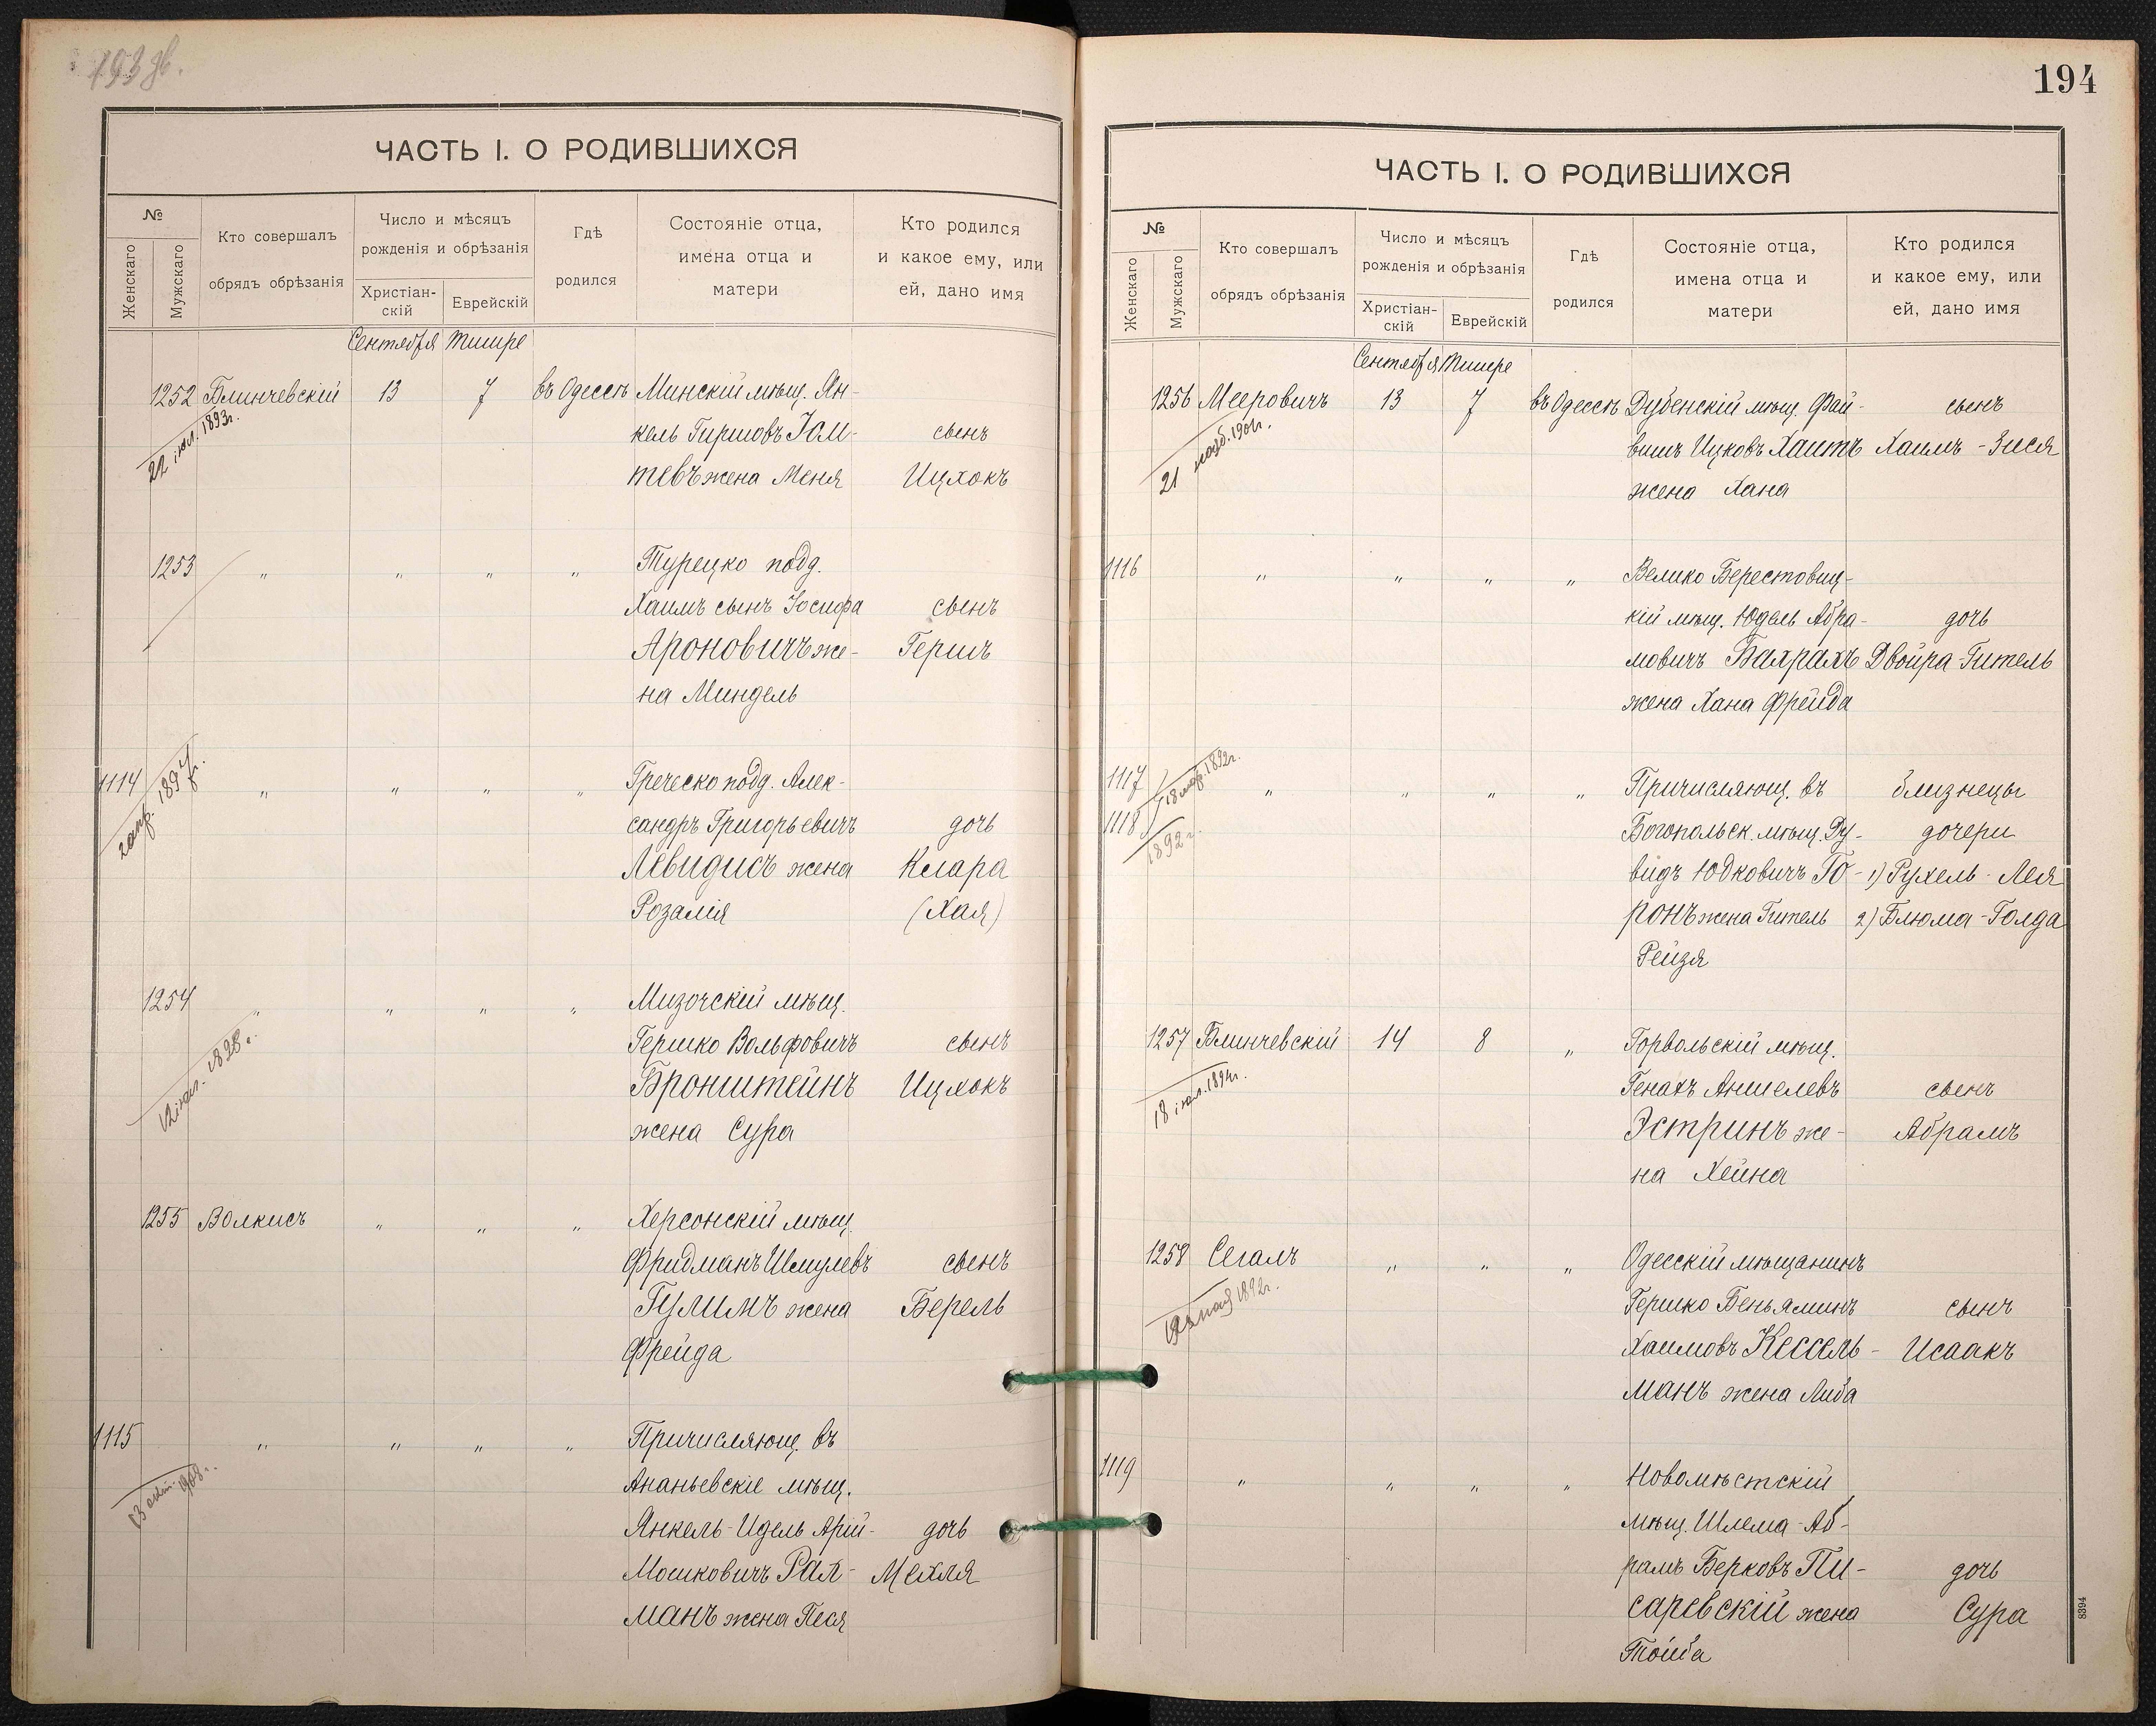 193 об.
ЧАСТЬ I. О РОДИВШИХСЯ
№
Женскаго
Мужскаго
Кто совершалъ
обрядъ обрѣзанія
Число и мѣсяцъ
рожденія и обрѣзанія
Христіан-
скій
Еврейскій
Гдѣ
родился
Состояніе отца,
имена отца и
матери
Кто родился
и какое ему, или
ей, дано имя
Сентября Тишре
1252 Блинчевскій 13 7 въ Одессѣ Минскій мѣщ. Ян-
22 іюл. 1893г.
кель Гиршовъ Іом- сынъ
тевъ жена Меня Ицхокъ
1253 " " " " Турецко подд.
Хаимъ сынъ Іосифа сынъ
Ароновичъ же- Гершъ
на Миндель
1114 " " " " Греческо подд. Алек-
2 апр. 1897г.
сандръ Григорьевичъ дочь
Левидисъ жена Клара
Розалія (Хая)
1254 " " " " Мизочскій мѣщ.
Гершко Вольфовичъ сынъ
Бронштейнъ Ицхокъ
жена Сура
1255 Волкисъ " " " Херсонскій мѣщ.
Фридманъ Шмулевъ сынъ
Гулимъ жена Берель
Фрейда
1115 " " " " Причисляющ. въ
Ананьевскіе мѣщ.
1908г.
Янкель-Идель Арій- дочь
Мошковичъ Рах- Мехля
манъ жена Песя
194
ЧАСТЬ I. О РОДИВШИХСЯ
№
Женскаго
Мужскаго
Кто совершалъ
обрядъ обрѣзанія
Число и мѣсяцъ
рожденія и обрѣзанія
Христіан-
скій
Еврейскій
Гдѣ
родился
Состояніе отца,
имена отца и
матери
Кто родился
и какое ему, или
ей, дано имя
Сентября Тишре
1256 Мееровичъ 13 7 въ Одессѣ Дубенскій мѣщ. Фай- сынъ
21 нояб. 1901г.
вишъ Ицковъ Хаитъ Хаимъ-Зися
жена Хана
1116 " " " " Велико Берестовиц-
кій мѣщ. Юдель Абра- дочь
мовичъ Бахрахъ Двойра-Гитель
жена Хана Фрейда
1117 " " " " Причисляющ. въ близнецы
1118
1892г.
Богопольск. мѣщ. Ру- дочери
видъ Юдковичъ Го- 1) Рухель-Лея
ронъ жена Гитель 2) Блюма-Голда
Рейзя
1257 Блинчевскій 14 8 " Горвольскій мѣщ.
18 іюл. 1894г.
Генахъ Аншелевъ сынъ
Эстринъ же- Абрамъ
на Хейна
1258 Сегалъ " " " Одесскій мѣщанинъ
1892г.
Гершко Беньяминъ сынъ
Хаимовъ Кессель- Исаакъ
манъ жена Либа
1119 " " " " Новомѣстскій
мѣщ. Шлема-Аб-
рамъ Берковъ Пи- дочь
саревскій жена Сура
Тойба
8394